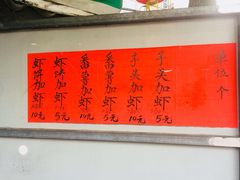 单位个
芋头加虾5元
芋头加虾10元
番薯加虾5元
番薯加虾10元
虾饼加虾5元
虾饼加虾10元